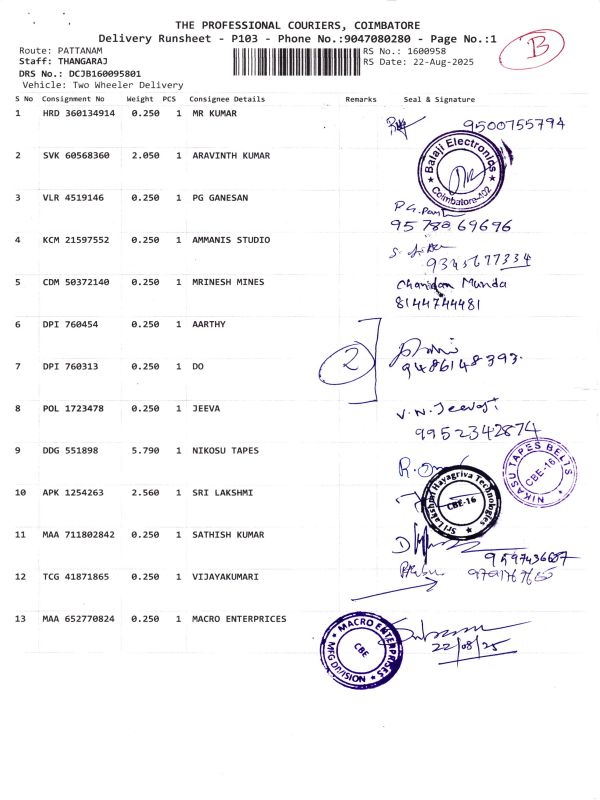 THE PROFESSIONAL COURIERS, COIMBATORE
Delivery Runsheet - P103 - Phone No.:9047080280 - Page No.:1
B
Route: PATTANAM
RS No.: 1600958
Staff: THANGARAJ
RS Date: 22-Aug-2025
DRS No.: DCJB160095801
Vehicle: Two Wheeler Delivery
S No Consignment No Weight PCS Consignee Details Remarks Seal & Signature
1 HRD 360134914 0.250 1 MR KUMAR
9500755794
2 SVK 60568360 2.050 1 ARAVINTH KUMAR
Balaji Electronics
Coimbatore-402
3 VLR 4519146 0.250 1 PG GANESAN
9578069696
4 KCM 21597552 0.250 1 AMMANIS STUDIO
9345677334
5 CDM 50372140 0.250 1 MRINESH MINES
Chandan Munda
8144744481
6 DPI 760454 0.250 1 AARTHY
2
7 DPI 760313 0.250 1 DO
9486148393.
8 POL 1723478 0.250 1 JEEVA
V.N.Jeeva
9952342874
9 DDG 551898 5.790 1 NIKOSU TAPES
NIKASU TAPES BELTS
CBE-16
10 APK 1254263 2.560 1 SRI LAKSHMI
Sri Lakshmi Hayagriva Technologies
CBE-16
11 MAA 711802842 0.250 1 SATHISH KUMAR
9597436607
12 TCG 41871865 0.250 1 VIJAYAKUMARI
13 MAA 652770824 0.250 1 MACRO ENTERPRICES
MACRO ENTERPRISES
CBE
MFG DIVISION
22/08/25